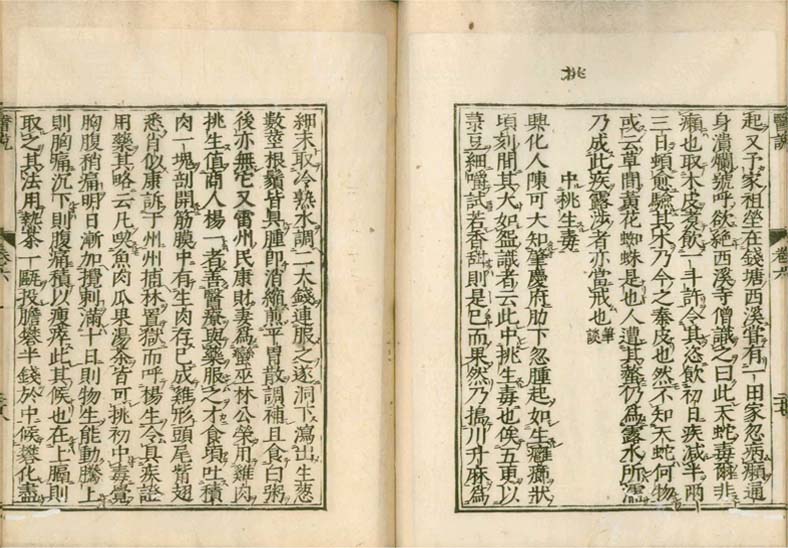 挑
醫說
卷六
起又予家祖塋在錢塘西溪甞有一田家忽病癩通
身潰爛號呼欲絕西溪寺僧識之曰此天蛇毒爾非
癩也取木皮煑飲一斗許令其恣飲初日疾減半兩
三日頓愈驗其木乃今之秦皮也然不知天蛇何物
或云草間黃花蜘蛛是也人遭其螫仍爲露水所濡
乃成此疾露涉者亦當戒也筆談
中挑生毒
興化人陳可大知肇慶府肋下忽腫起如生癰癤狀
頃刻間其大如盌識者云此中挑生毒也俟五更以
菉豆細嚼試若香甜則是已而果然乃搗川升麻爲
細末取冷熟水調二大錢連服之遂洞下瀉出生葱
數莖根鬚皆具腫即消續煎平胃散調補且食白粥
後亦無它又雷州民康財妻爲蠻巫林公榮用雞肉
挑生值商人楊一者善醫療與藥服之才食頃吐積
肉一塊剖開筋膜中有生肉存已成雞形頭尾觜翅
悉肖似康訴于州州捕林置獄而呼楊生令具疾證
用藥其略云凡喫魚肉瓜果湯茶皆可挑初中毒覺
胸腹稍痛明日漸加攪刺滿十日則物生能動騰上
則胸痛沉下則腹痛積以瘦瘁此其候也在上膈則
取之其法用熱茶一甌投膽礬半錢於中候礬化盡
醫說
卷六